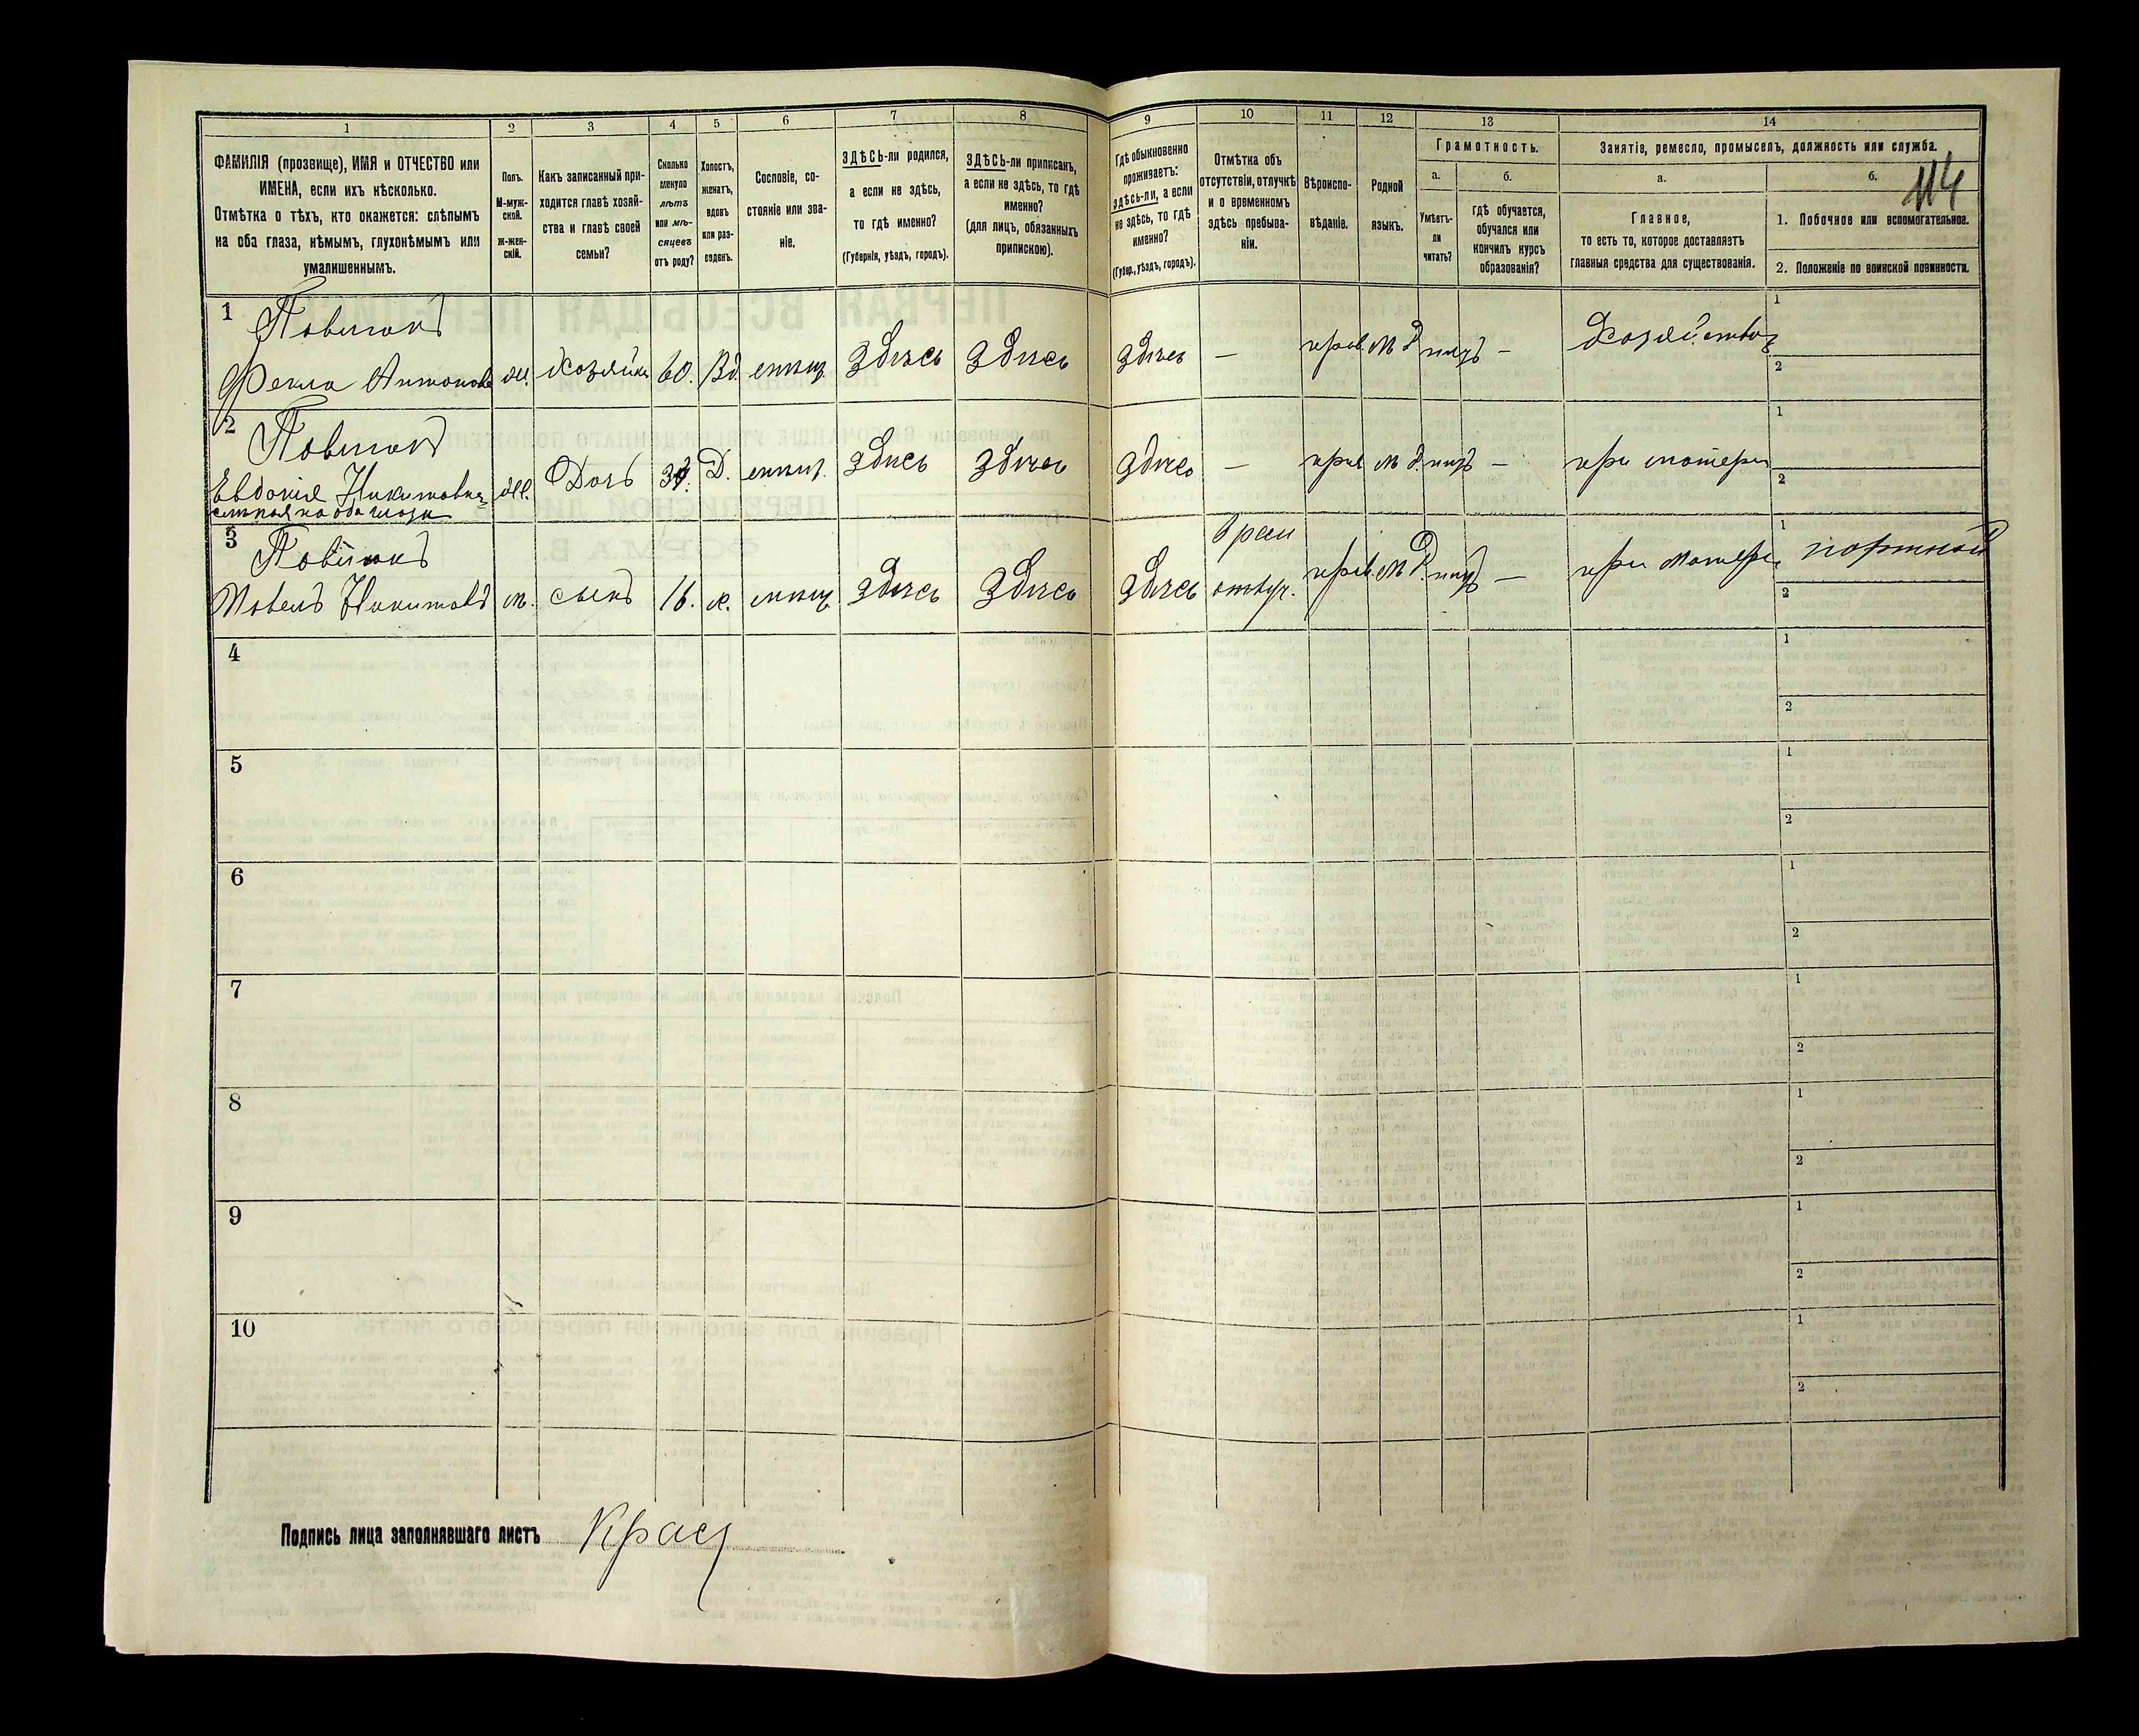 1 2 3 4 5 6 7 8 9 10 11 12 13 14
114
ФАМИЛІЯ (прозвище), ИМЯ и ОТЧЕСТВО или
ИМЕНА, если ихъ нѣсколько.
Отмѣтка о тѣхъ, кто окажется: слѣпымъ
на оба глаза, нѣмымъ, глухонѣмымъ или
умалишеннымъ.
Полъ.
М-муж-
ской.
Ж-жен-
скій.
Какъ записанный при-
ходится главѣ хозяй-
ства и главѣ своей
семьи?
Сколько
минуло
лѣтъ
или мѣ-
сяцевъ
отъ роду?
Холостъ,
женатъ,
вдовъ
или раз-
веденъ.
Сословіе, со-
стояніе или зва-
ніе.
ЗДѢСЬ-ли родился,
а если не здѣсь,
то гдѣ именно?
(Губернія, уѣздъ, городъ).
ЗДѢСЬ-ли приписанъ,
а если не здѣсь, то гдѣ
именно?
(для лицъ, обязанныхъ
припискою).
Гдѣ обыкновенно
проживаетъ:
здѣсь-ли, а если
не здѣсь, то гдѣ
именно?
(Губер., уѣздъ, городъ).
Отмѣтка объ
отсутствіи, отлучкѣ
и о временномъ
здѣсь пребыва-
ніи.
Вѣроиспо-
вѣданіе.
Родной
языкъ.
Грамотность.
а.
Умѣетъ-
ли
читать?
б.
гдѣ обучается,
обучался или
кончилъ курсъ
образованія?
Занятіе, ремесло, промыселъ, должность или служба.
а.
Главное,
то есть то, которое доставляетъ
главныя средства для существованія.
б.
1. Побочное или вспомогательное.
2. Положеніе по воинской повинности.
1
Фекла Антонова Ж. Хозяйка 60. Вд. Здѣсь Здѣсь здѣсь — прав. М —
1
2
2
Евдокія Никитовна Ж. Дочь Д. здѣсь здѣсь здѣсь — прав при матери
слѣпая на оба глаза
1
2
3
Никитовъ м. сынъ 16. х. здѣсь здѣсь здѣсь прав. — при матери портной
1
2
4
1
2
5
1
2
6
1
2
7
1
2
8
1
2
9
1
2
10
1
2
Подпись лица заполнявшаго листъ